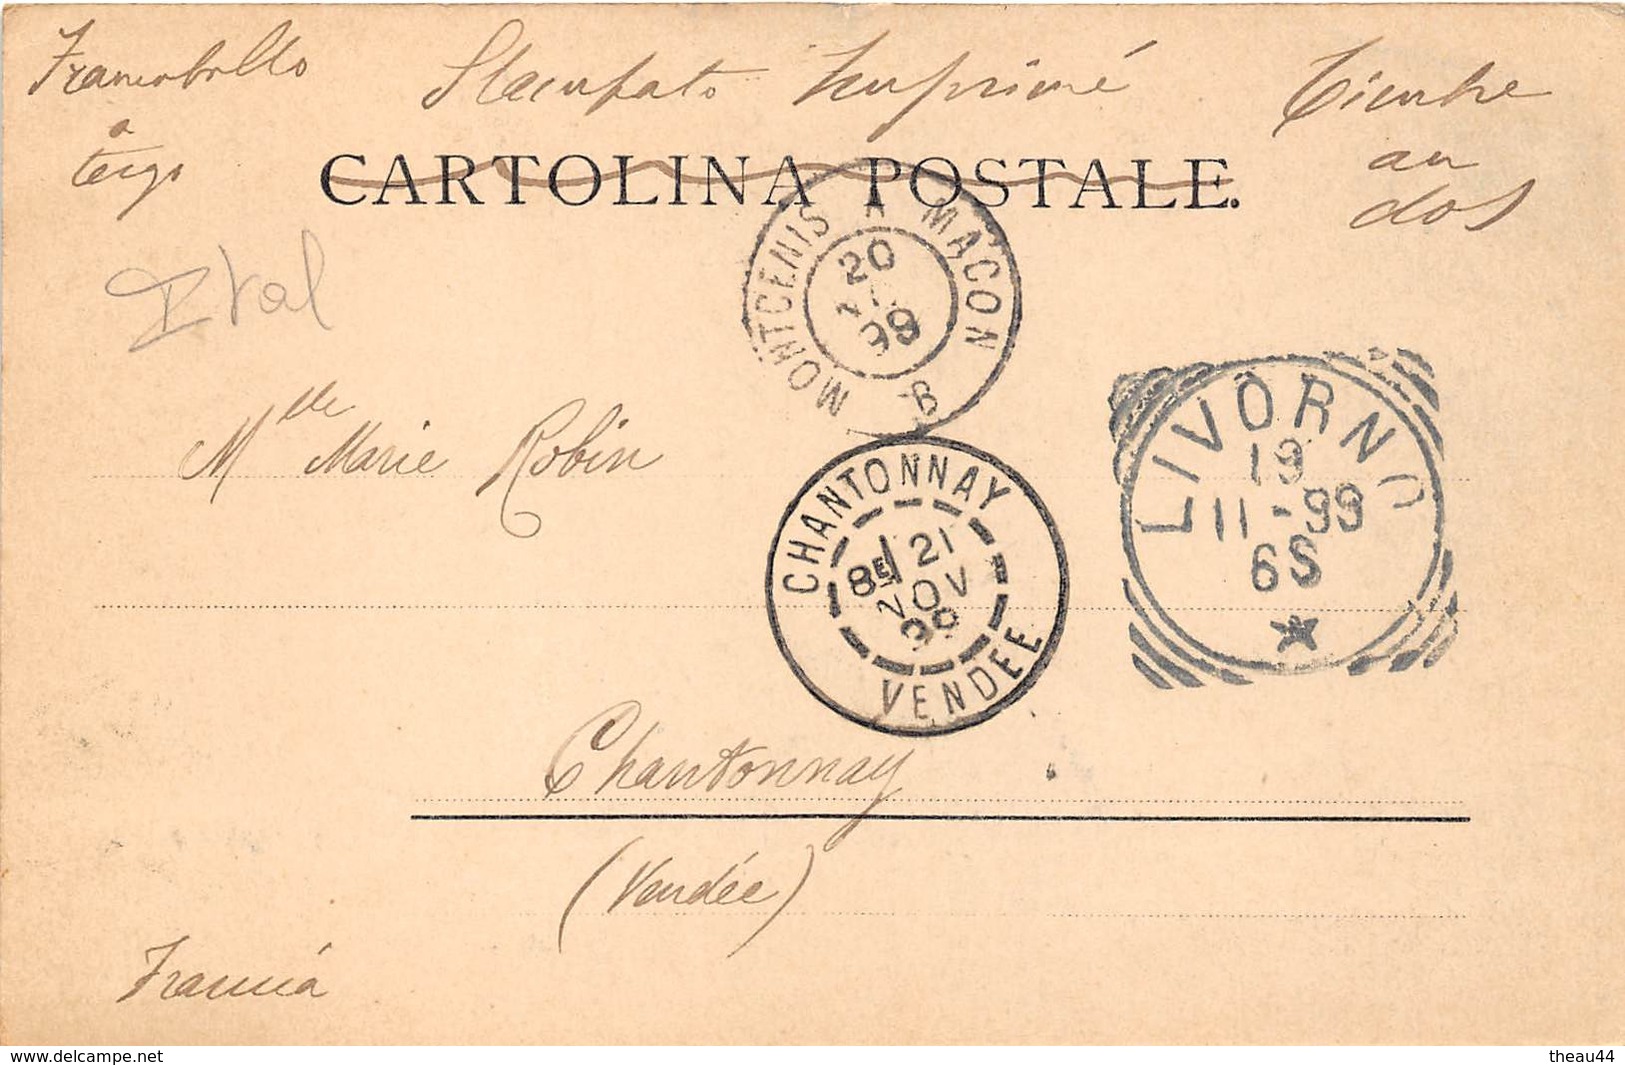 Francobollo Stampato Imprimé Timbre
a tergo au
dos
CARTOLINA POSTALE.
Ital
MONTCENIS A MACON
20
99
B
Mlle Marie Robin
LIVORNO
19
11-99
6S
CHANTONNAY
8E 21
NOV
99
VENDEE
Chantonnay
(Vendée)
Francia
www.delcampe.net
theau44